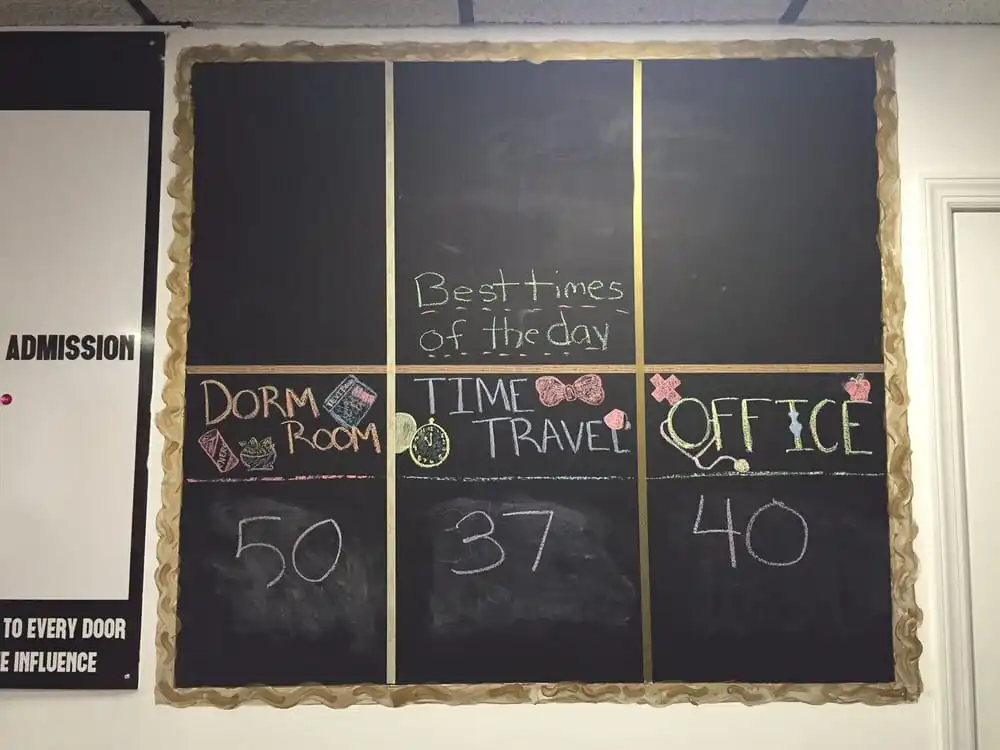 ADMISSION
TO EVERY DOOR
E INFLUENCE
Best times
of the day
DORM
ROOM
TIME
TRAVEL
OFFICE
50
37
40